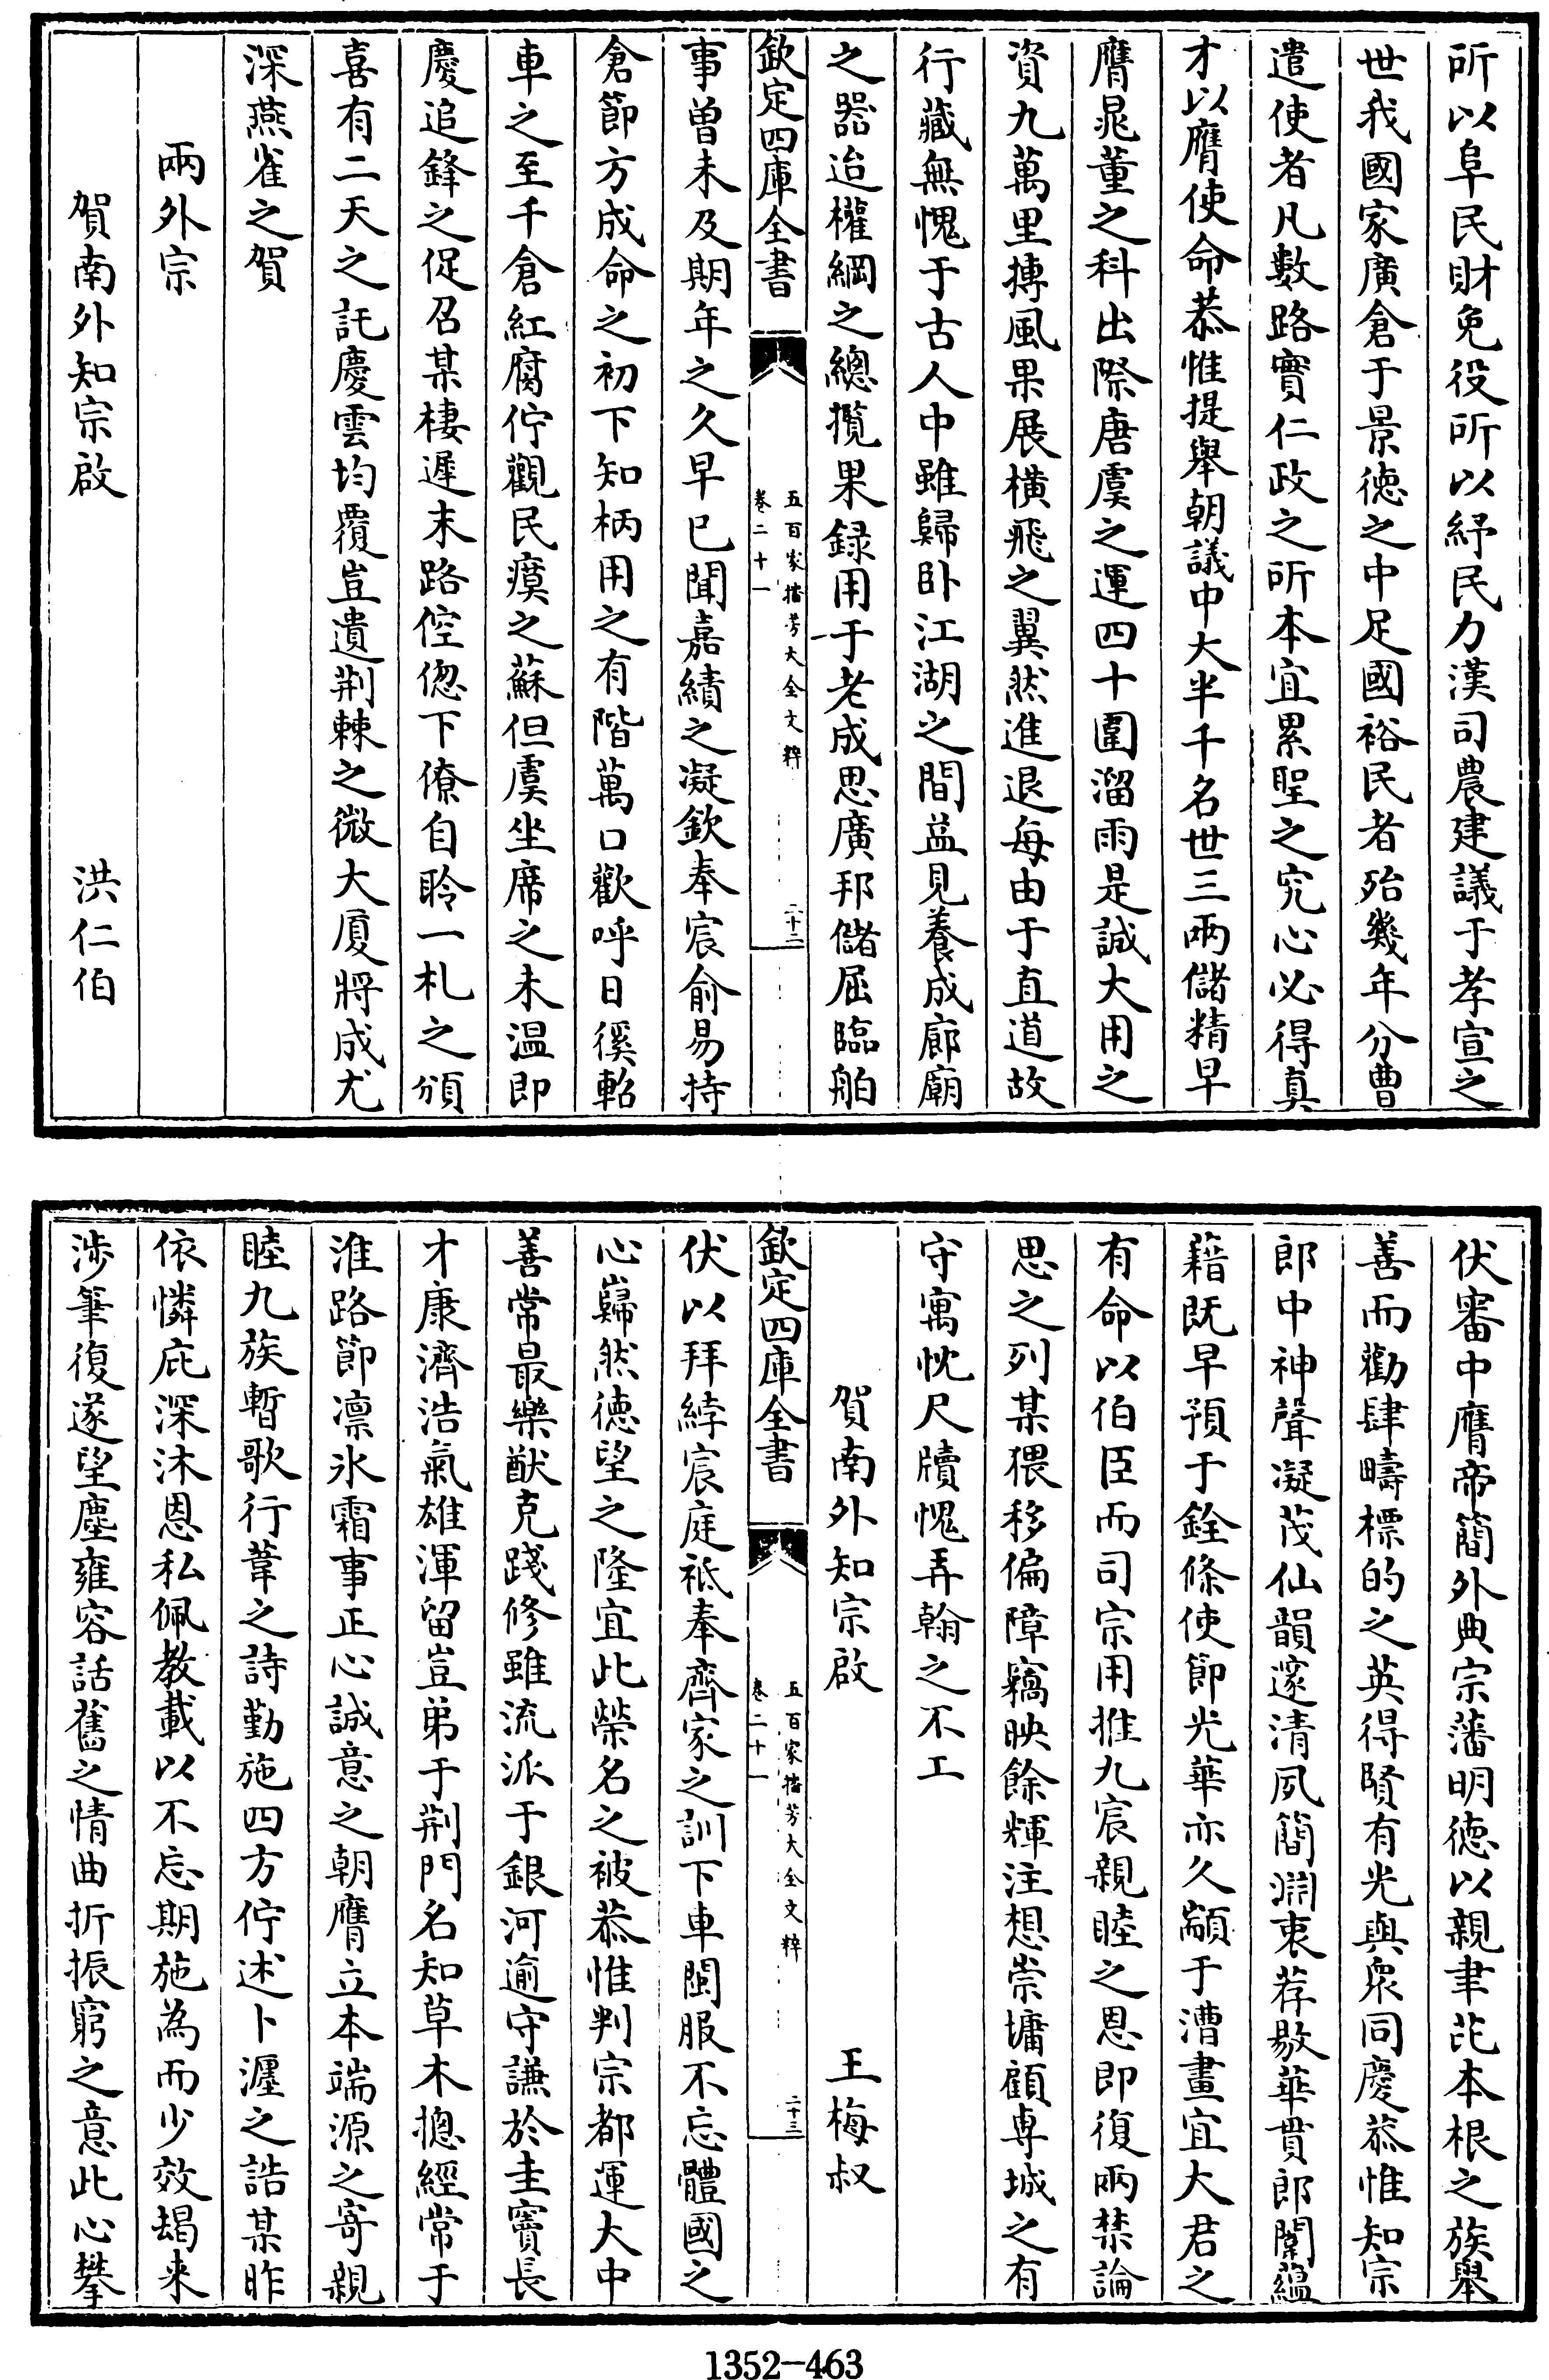 所以阜民財免役所以紓民力漢司農建議于孝宣之
世我國家廣倉于景德之中足國裕民者殆幾年分曹
遣使者凡數路實仁政之所本宜累聖之究心必得真
才以膺使命恭惟提舉朝議中大半千名世三兩儲精早
膺晁董之科出際唐虞之運四十圍溜雨是誠大用之
資九萬里摶風果展橫飛之翼然進退每由于直道故
行藏無愧于古人中雖歸卧江湖之間益見養成廊廟
之器迨權綱之總攬果録用于老成思廣邦儲屈臨舶
欽定四庫全書
五百家播芳大全文粹
卷二十一
二十二
事曾未及期年之久早已聞嘉績之凝欽奉宸俞易持
倉節方成命之初下知柄用之有階萬口歡呼日徯軺
車之至千倉紅腐佇觀民瘼之蘇但虞坐席之未温即
慶追鋒之促召某棲遲末路倥偬下僚自聆一札之頒
喜有二天之託慶雲均覆豈遺荆棘之微大厦將成尤
深燕雀之賀
兩外宗
賀南外知宗啟 洪仁伯
伏審中膺帝簡外典宗藩明德以親聿茈本根之族舉
善而勸肆疇標的之英得賢有光與衆同慶恭惟知宗
郎中神聲凝茂仙韻邃清夙簡淵衷荐敭華貫郎闈蘊
藉既早預于銓條使節光華亦久顓于漕畫宜大君之
有命以伯臣而司宗用推九宸親睦之恩即復兩禁論
思之列某猥移偏障竊映餘輝注想崇墉顧専城之有
守寓忱尺牘愧弄翰之不工
賀南外知宗啟 王梅叔
欽定四庫全書
五百家播芳大全文粹
卷二十一
二十三
伏以拜綍宸庭祗奉齊家之訓下車閩服不忘體國之
心巋然德望之隆宜此榮名之被恭惟判宗都運大中
善常最樂猷克踐修雖流派于銀河逾守謙於圭竇長
才康濟浩氣雄渾留豈弟于荆門名知草木摠經常于
淮路節凛氷霜事正心誠意之朝膺立本端源之寄親
睦九族暫歌行葦之詩勤施四方佇述卜瀍之誥某昨
依憐庇深沐恩私佩教載以不忘期施為而少效朅来
涉筆復遂望塵雍容話舊之情曲折振窮之意此心攀
1352-463